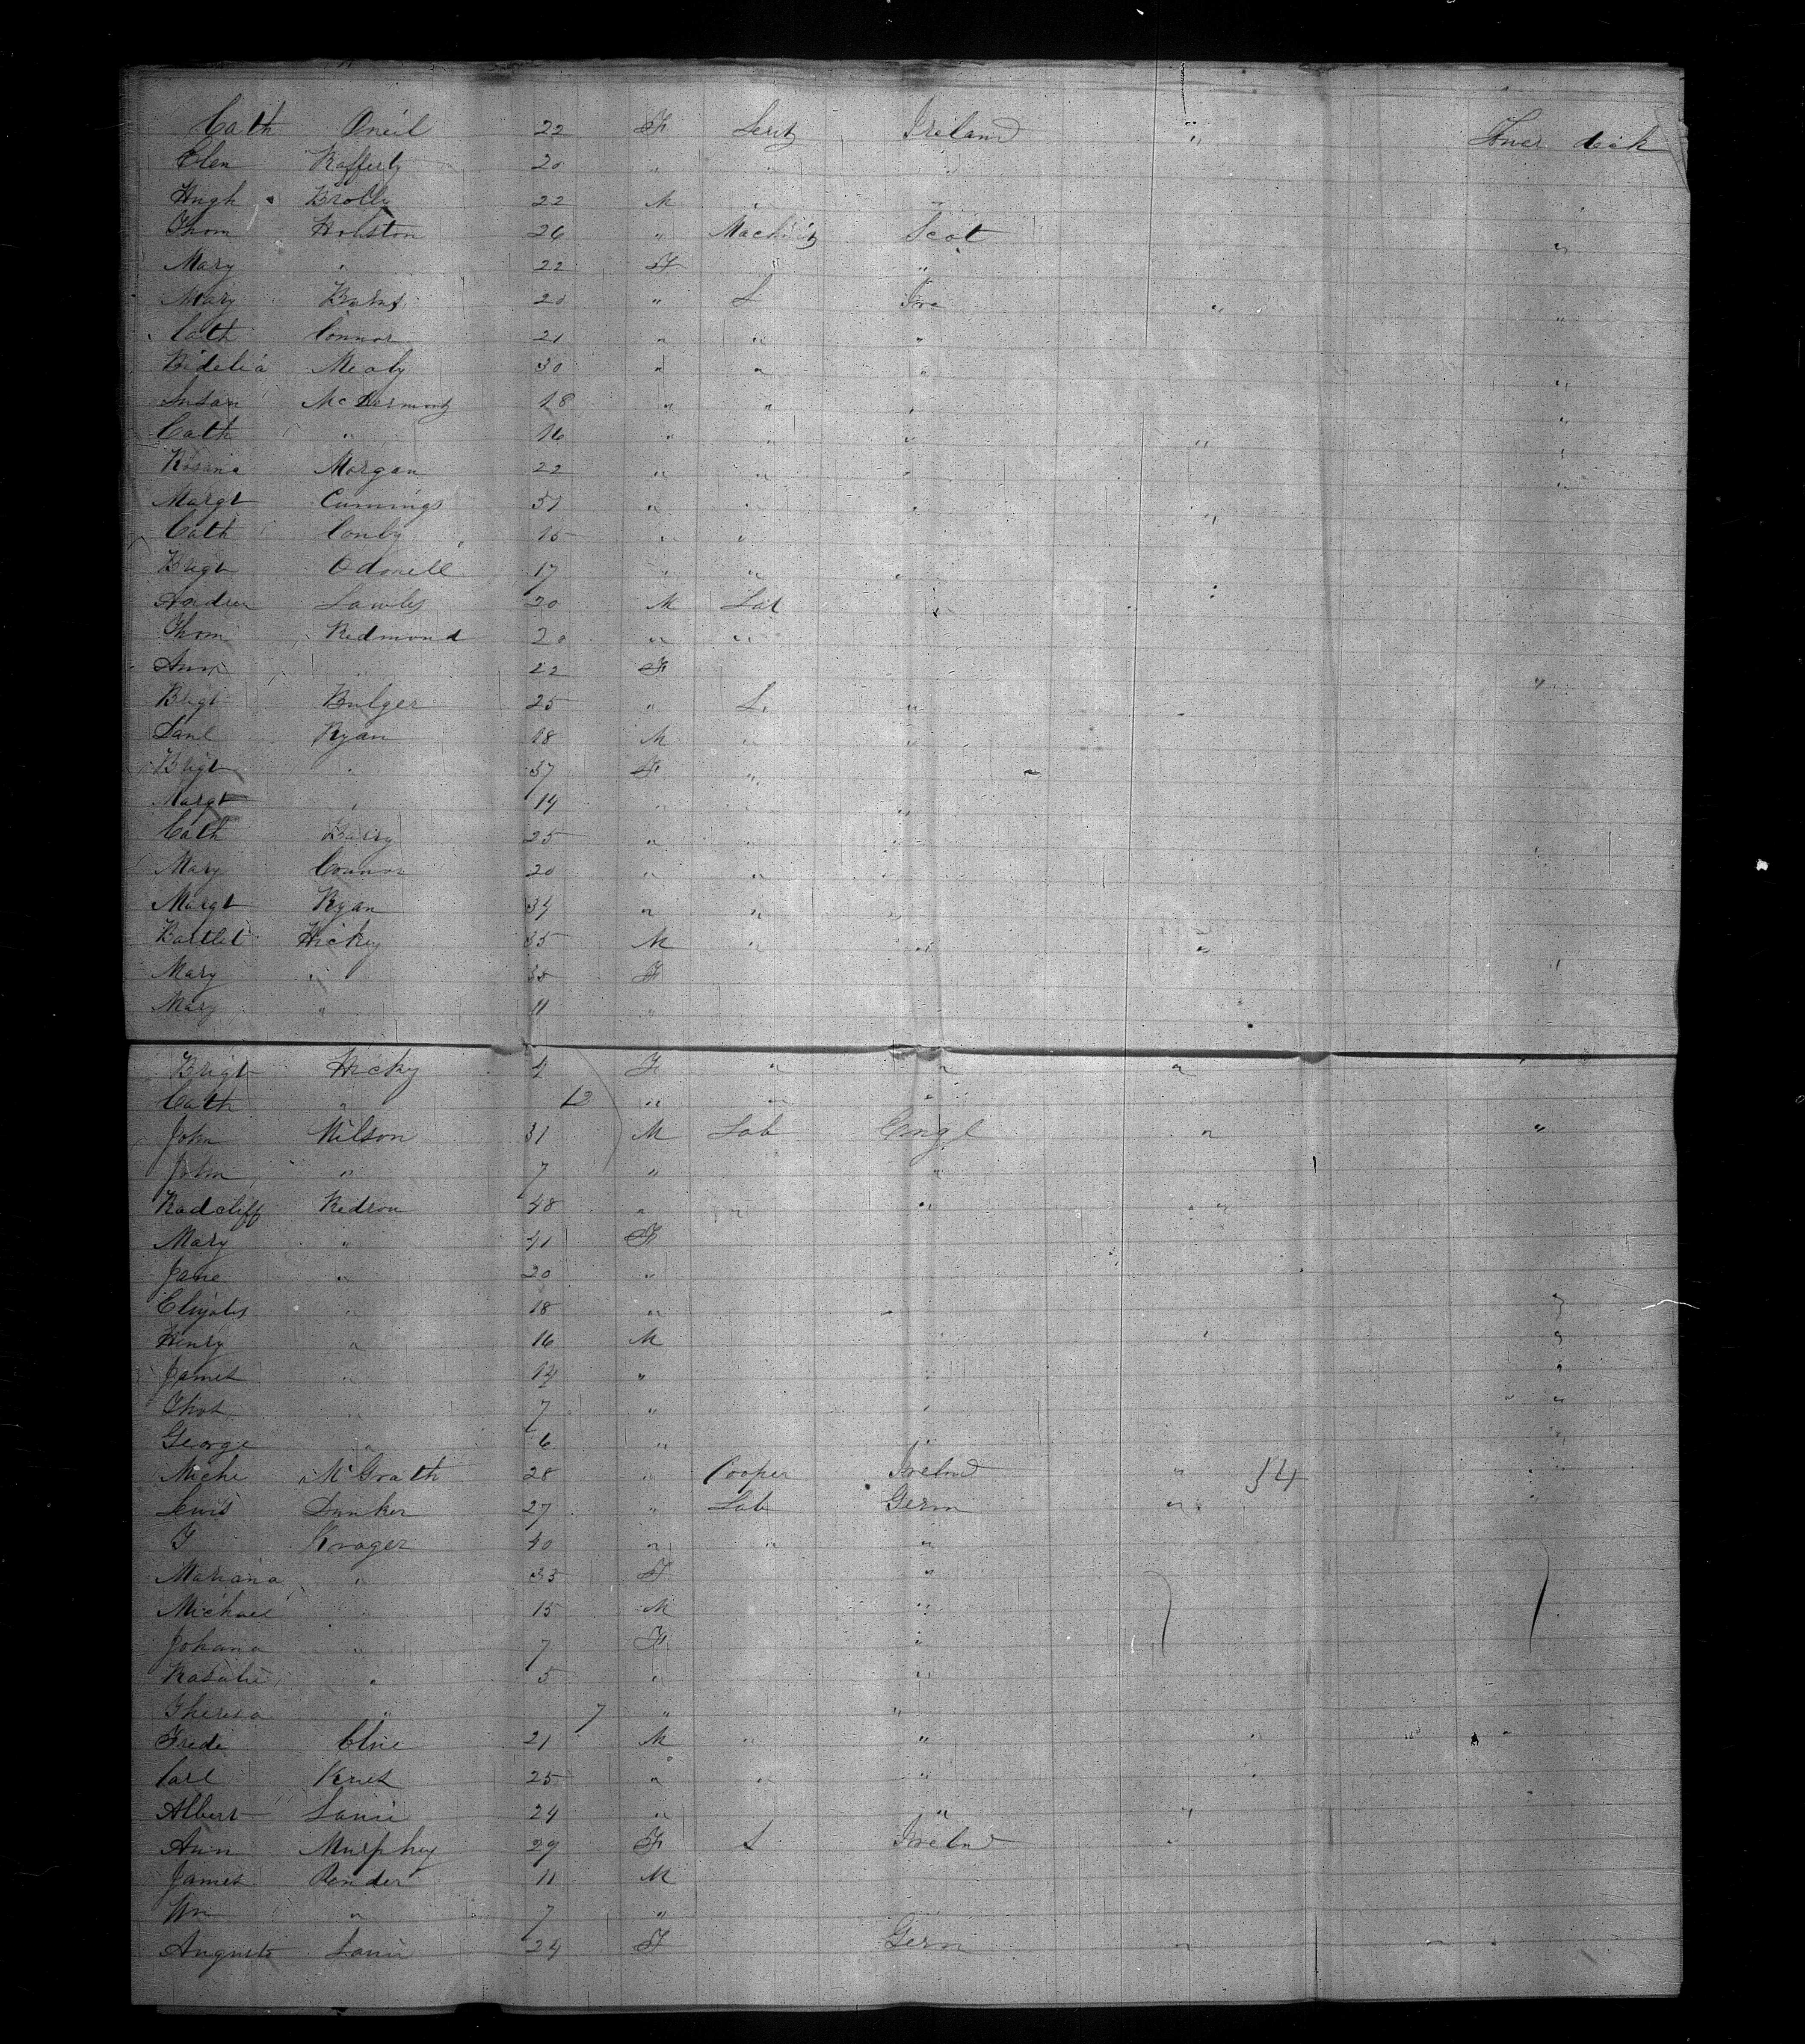 Cath Oneil 22 F Servt Ireland " Lower deck
Elen Rafferty 20 " " "
Hugh Brolly 22 M " "
Thom Holston 26 " Machinist Scot "
Mary " 22 F " "
Mary Burns 20 " S Ire " "
Cath Connor 21 " " "
Bidelia Mealy 30 " " " "
Susan McDermont 18 " " " "
Cath " 16 " " " " "
Rosana Morgan 22 " " " "
Margt Cummings 31 " " " "
Cath Conly 15 " "
Brigt Odonell 17 " " "
Andrew Lawles 20 M Lab "
Thom Redmond 20 " "
Ann " 22 F "
Brigt Bulger 25 " S. "
Danl Ryan 18 M " "
Brigt " 37 F "
Margt " 14 " " "
Cath Barry 25 " " "
Mary Connor 20 " " "
Margt Ryan 34 " " "
Bartlet Hickey 35 M " " " "
Mary " 35 F
Mary " 11 "
Brigt Hicky 4 F " " " "
Cath " 12 " " "
John Wilson 31 M Lab Engl " "
John " 7 " "
Radcliff Kedron 48 " " " "
Mary " 41 F
Jane " 20 "
Elizabet " 18 " "
Henry " 16 M " "
James " 14 " "
Thos " 7 " "
George " 6 " " "
Miche McGrath 28 " Cooper Irelnd " 54 "
Lewis Dunker 27 " Lab Germ " "
J Krager 40 " " "
Mariana " 33 F "
Michael " 15 M "
Johana " 7 F "
Rosalie " 5 " "
Theresa " 7 " "
Frede Cline 21 M " " " "
Carl 25 " " "
Albert 24 " " "
Ann Murphey 29 F S Irelnd "
James Pender 11 M
Wm " 7 "
Auguste 24 F Germ " "